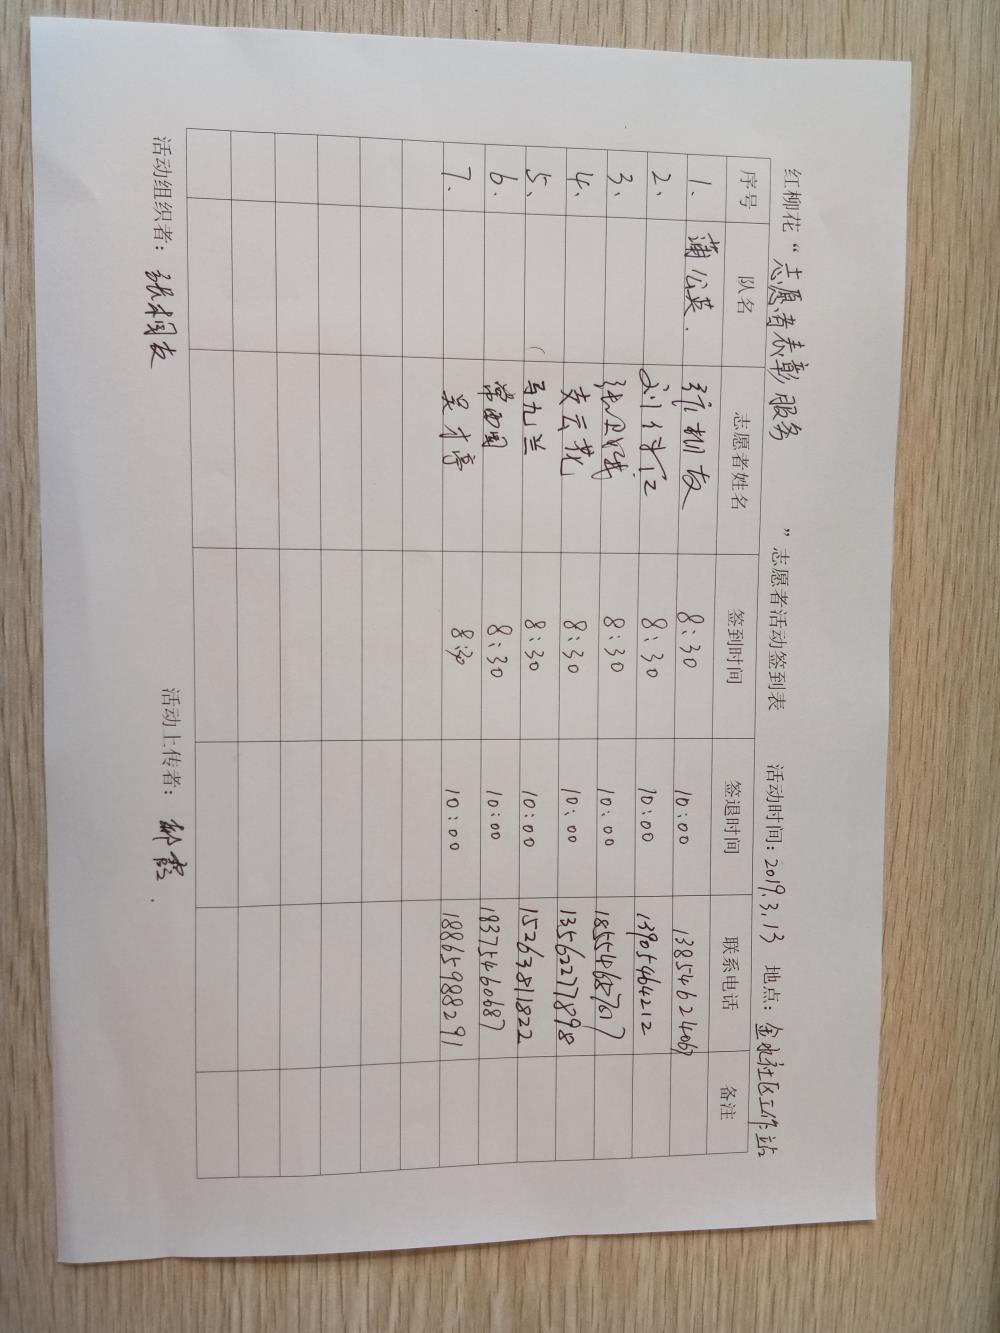 红柳花“志愿者表彰服务”志愿者活动签到表 活动时间：2019.3.13 地点：金水社区工作站
序号 队名 志愿者姓名 签到时间 签退时间 联系电话 备注
1、 蒲公英. 张相友 8:30 10:00 13854624067
2、 8:30 10:00 13905464212
3、 8:30 10:00 18554687017
4、 支云花 8:30 10:00 13562277898
5、 马九兰 8:30 10:00 15263811822
6、 常西国 8:30 10:00 18375460687
7、 吴才亭 8:30 10:00 18865988291
活动组织者：张相友 活动上传者：郝霞.